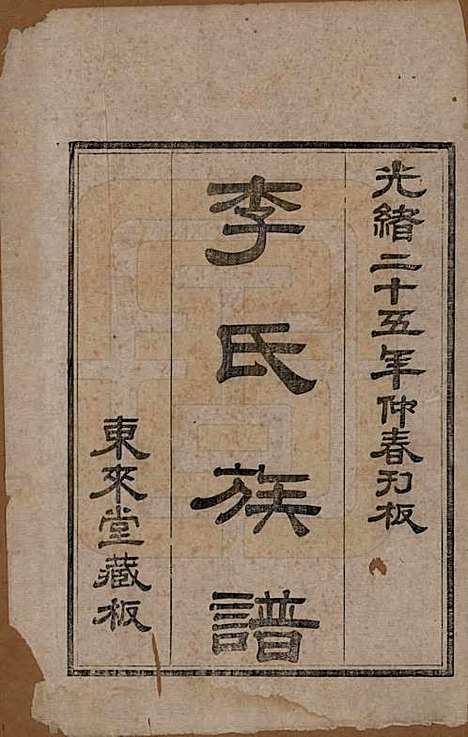 光緒二十五年仲春刊板
李氏族譜
東來堂藏板